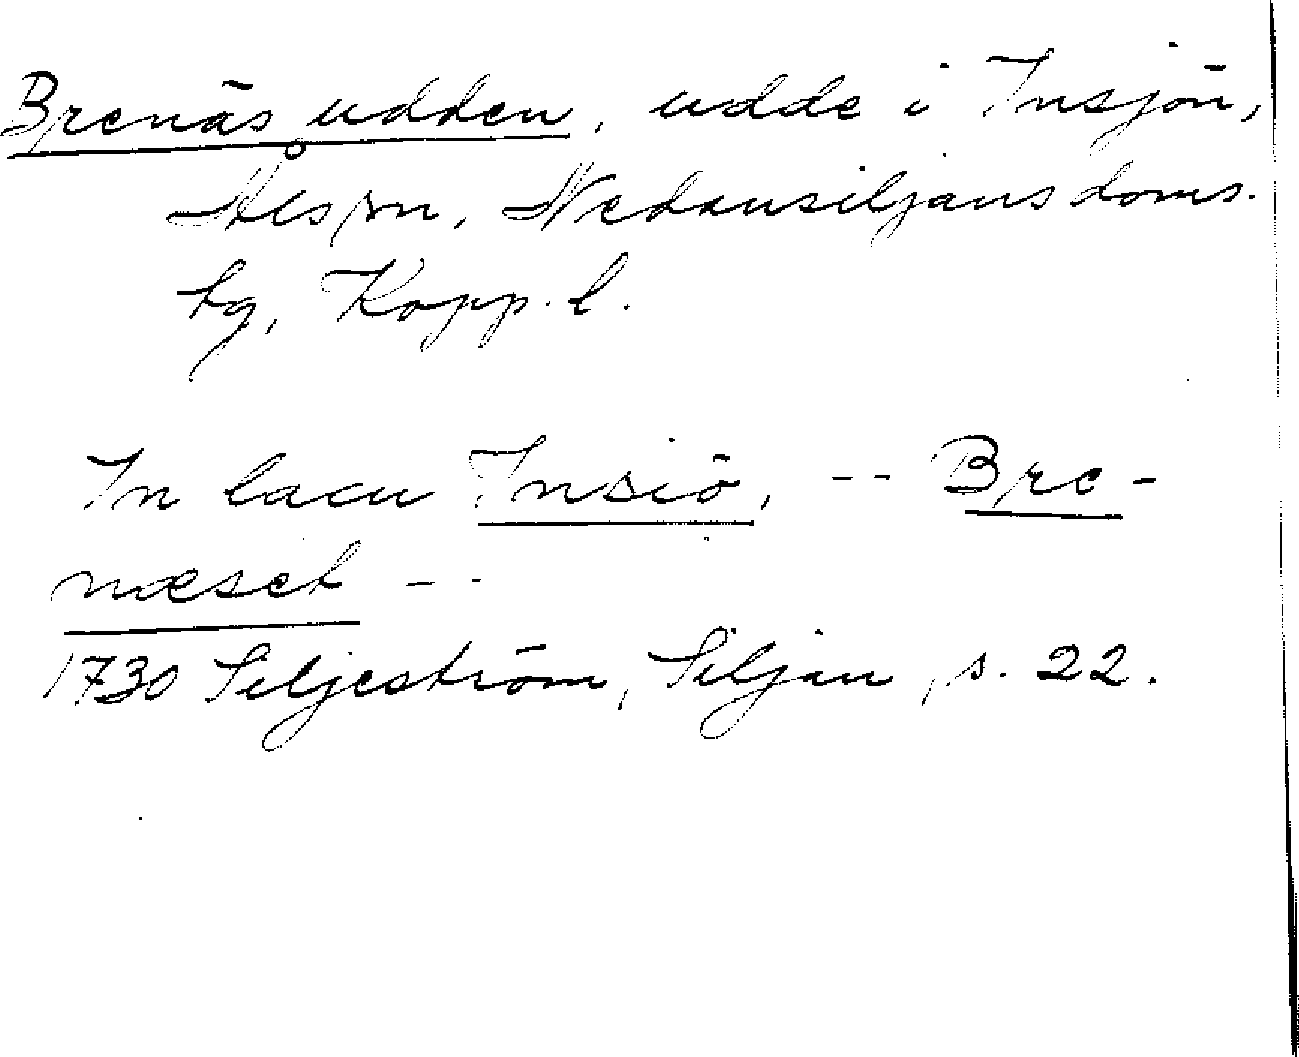 Brenäs udden, udde i Insjön,
Åls sn, Nedansiljans doms.
tg, Kopp. l.
In lacu Insiö, -- Bre-
næset --
1730 Siljeström, Siljan, s. 22.